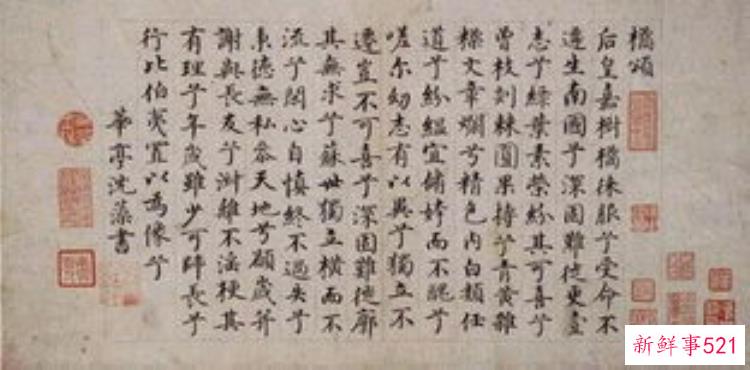 橘頌
后皇嘉樹橘徠服兮受命不
遷生南國兮深固難徙更壹
志兮緑葉素榮紛其可喜兮
曾枝剡棘圓果摶兮青黄雜
糅文章爛兮精色内白類任
道兮紛緼宜脩姱而不醜兮
嗟尔幼志有以異兮獨立不
遷豈不可喜兮深固難徙廓
其無求兮蘇世獨立横而不
流兮閉心自慎終不過失兮
秉德無私叅天地兮願歲并
謝與長友兮淑離不淫梗其
有理兮年歲雖少可師長兮
行比伯夷置以為像兮
華亭沈藻書
新鲜事521